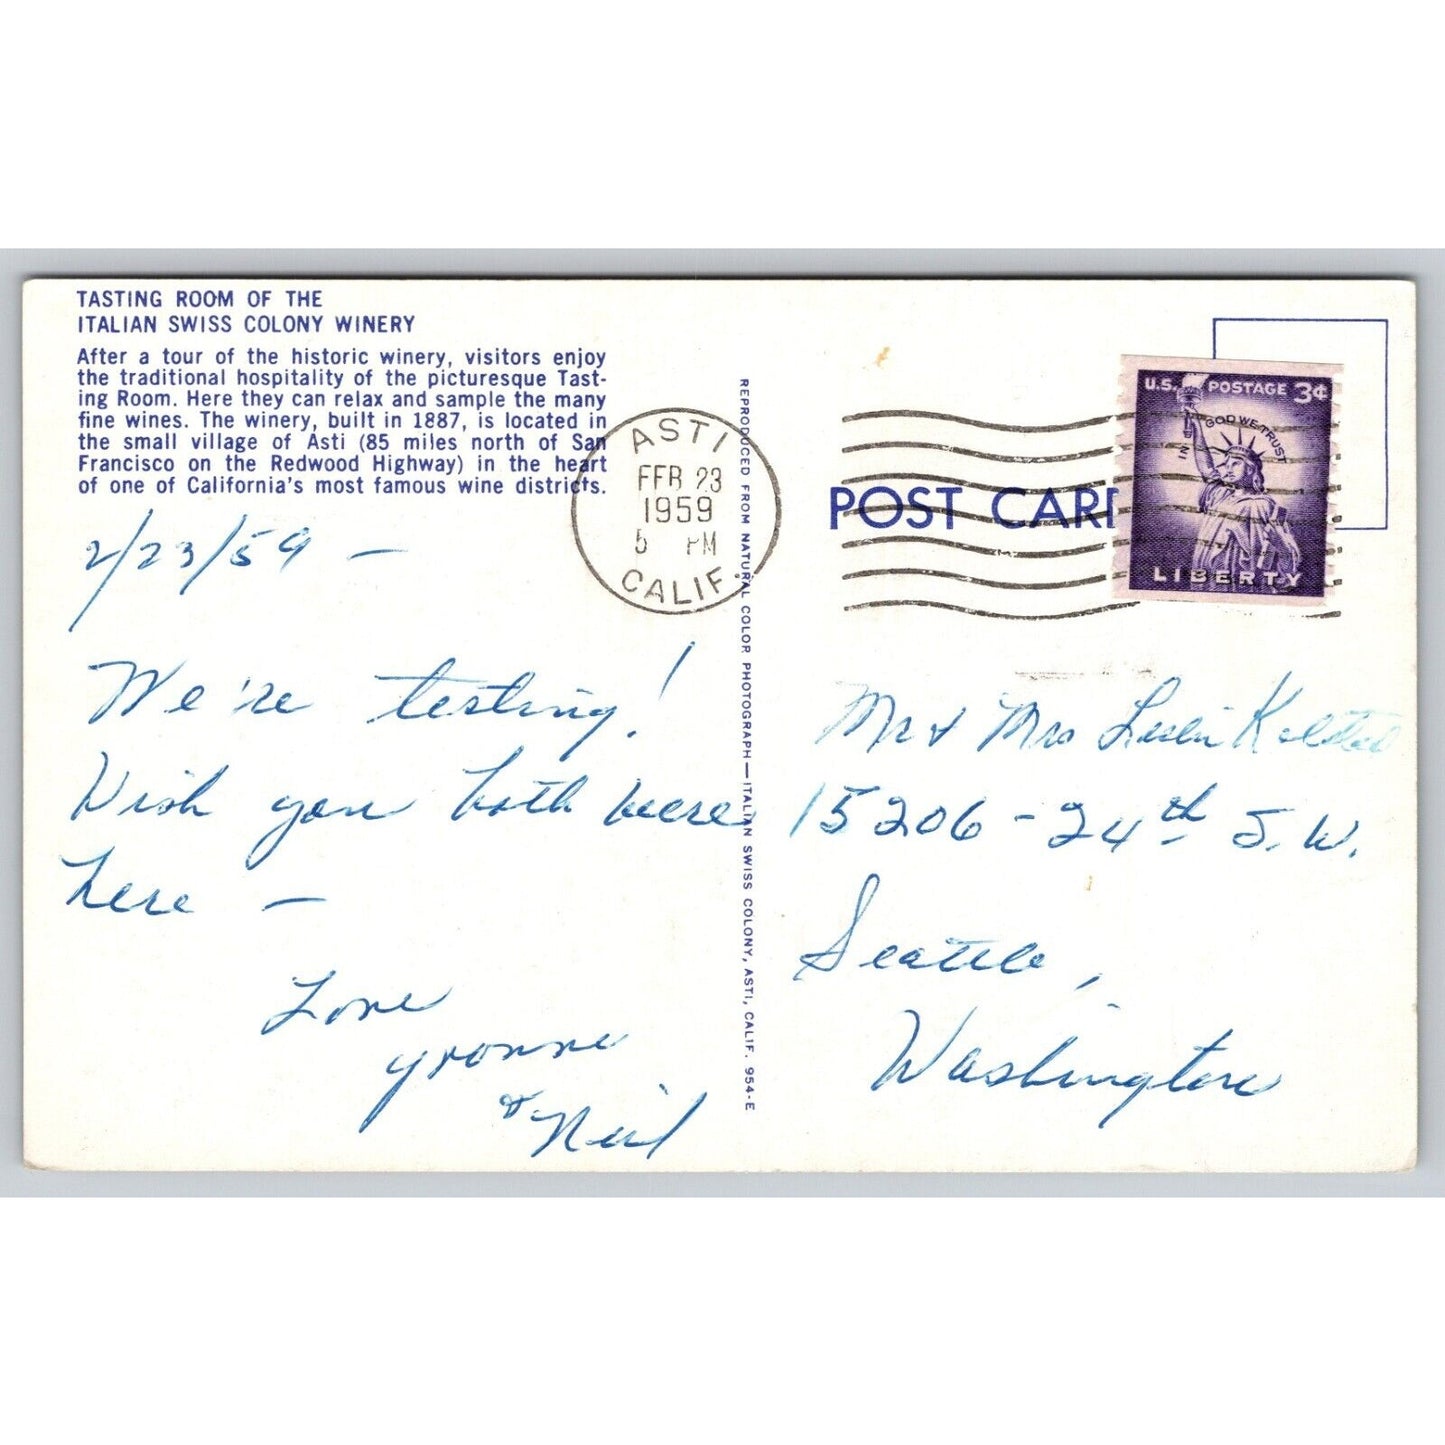 TASTING ROOM OF THE
ITALIAN SWISS COLONY WINERY
After a tour of the historic winery, visitors enjoy
the traditional hospitality of the picturesque Tast-
ing Room. Here they can relax and sample the many
fine wines. The winery, built in 1887, is located in
the small village of Asti (85 miles north of San
Francisco on the Redwood Highway) in the heart
of one of California's most famous wine districts.
2/23/59 —
We're testing!
Wish you both were
here —
Love
Yvonne
& Neil
REPRODUCED FROM NATURAL COLOR PHOTOGRAPH—ITALIAN SWISS COLONY, ASTI, CALIF. 954-E
ASTI
FEB 23
1959
5 PM
CALIF.
POST CAR
U.S. POSTAGE 3¢
IN GOD WE TRUST
LIBERTY
Mr & Mrs Leslie
15206 - 24th S.W.
Seattle,
Washington